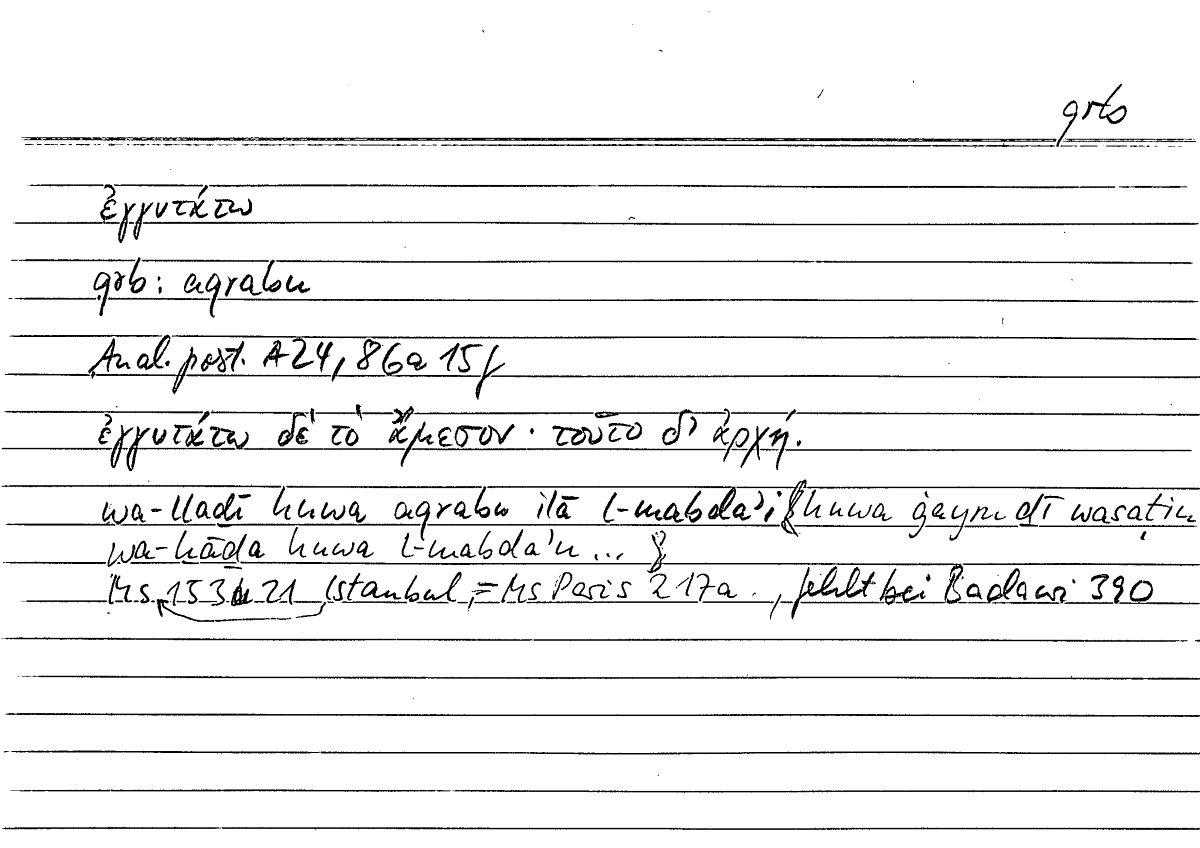 grts
ἐγγυτάτω
qrb: aqrabu
Anal. post. A 24, 86a 15f
ἐγγυτάτω δὲ τὸ ἄμεσον· τοῦτο δ' ἀρχή.
wa-llaḏī huwa aqrabu ilā l-mabda'i {huwa ġayru ḏī wasaṭin
wa-hāḏa huwa l-mabda'u ... }
Ms 153 21 Istanbul, = Ms Paris 217a., fehlt bei Badawi 390